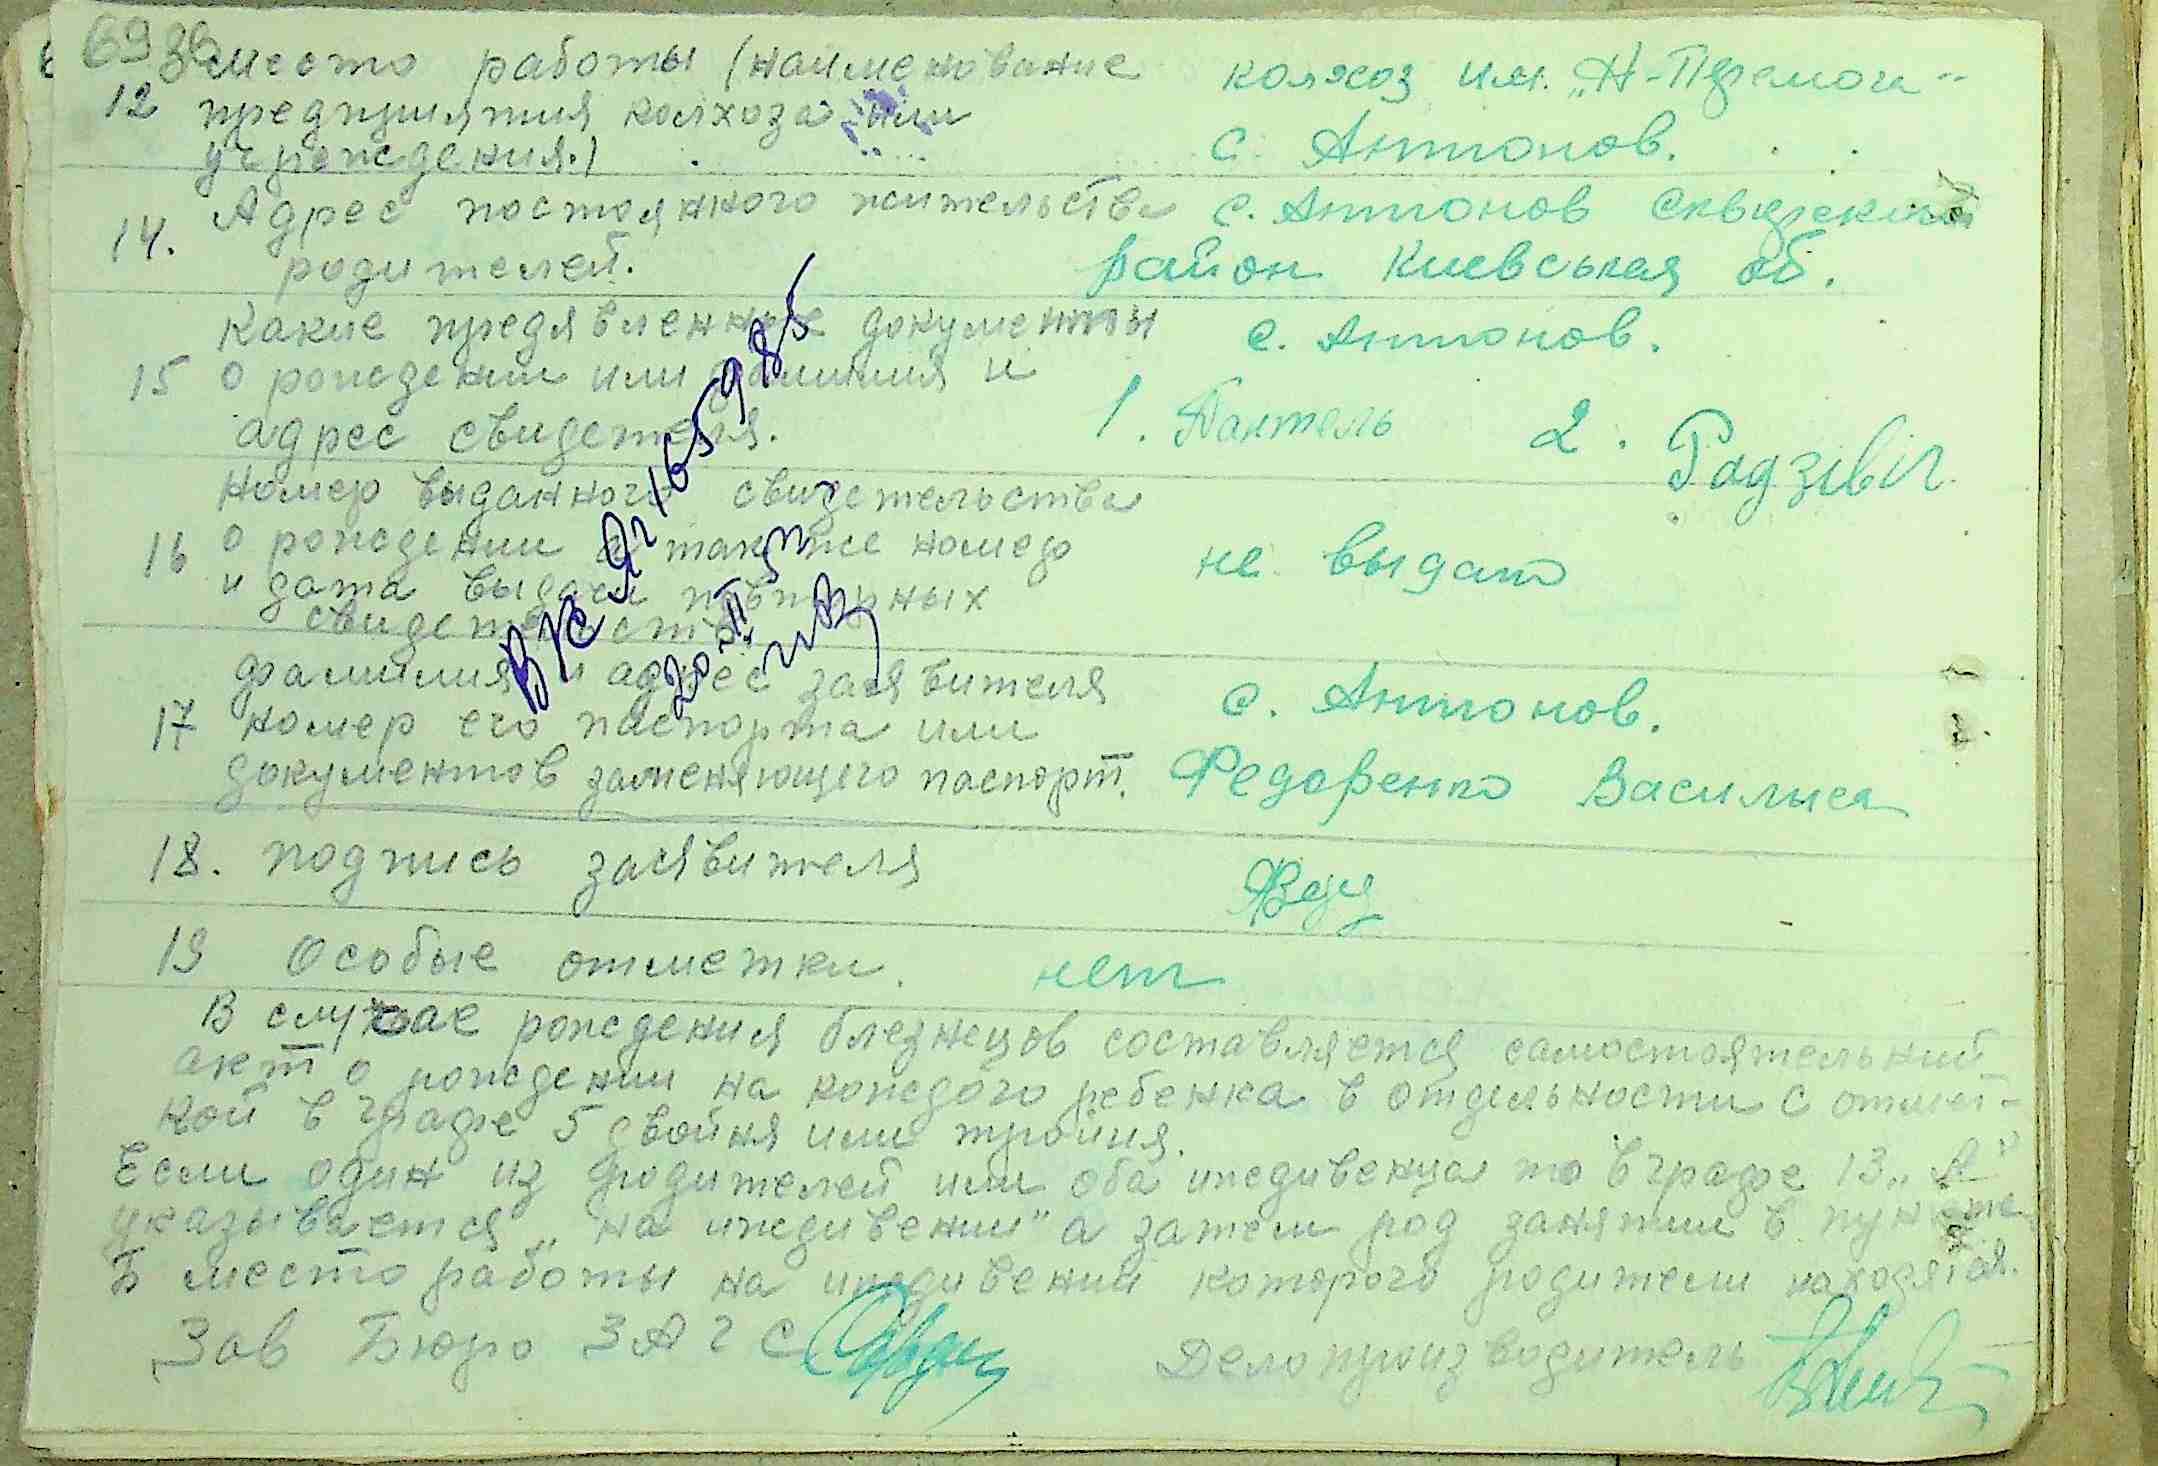 693
место работы (наименование колхоз им. „Н-Перемога"
12 предприятия колхоза или
учреждения.) с. Антонов.
14. Адрес постоянного жительства с. Антонов Сквирский
родителей. район Киевськая об.
Какие предявленные документы с. Антонов.
15 о рождении или фамилия и
адрес свидетеля. 1. Пантель 2. Радзівіл
Номер выданного свидетельства
16 о рождении а также номер не выдано
и дата выдачи повторных
свидетельств.
фамилия и адрес заявителя с. Антонов.
17 номер его паспорта или
документов заменяющего паспорт. Федоренко Василиса
18. подпись заявителя
19 Особые отметки. нет
В случае рождения близнецов составляется самостоятельний
акт о рождении на каждого ребенка в отдельности с отмет-
кой в графе 5 двойня или тройня.
Если один из родителей или оба иждивенца то в графе 13 „А"
указывается „на иждивении" а затем род занятии в пункте
Б место работы на иждивении которого родители находятся.
Зав Бюро ЗАГС Делопроизводитель